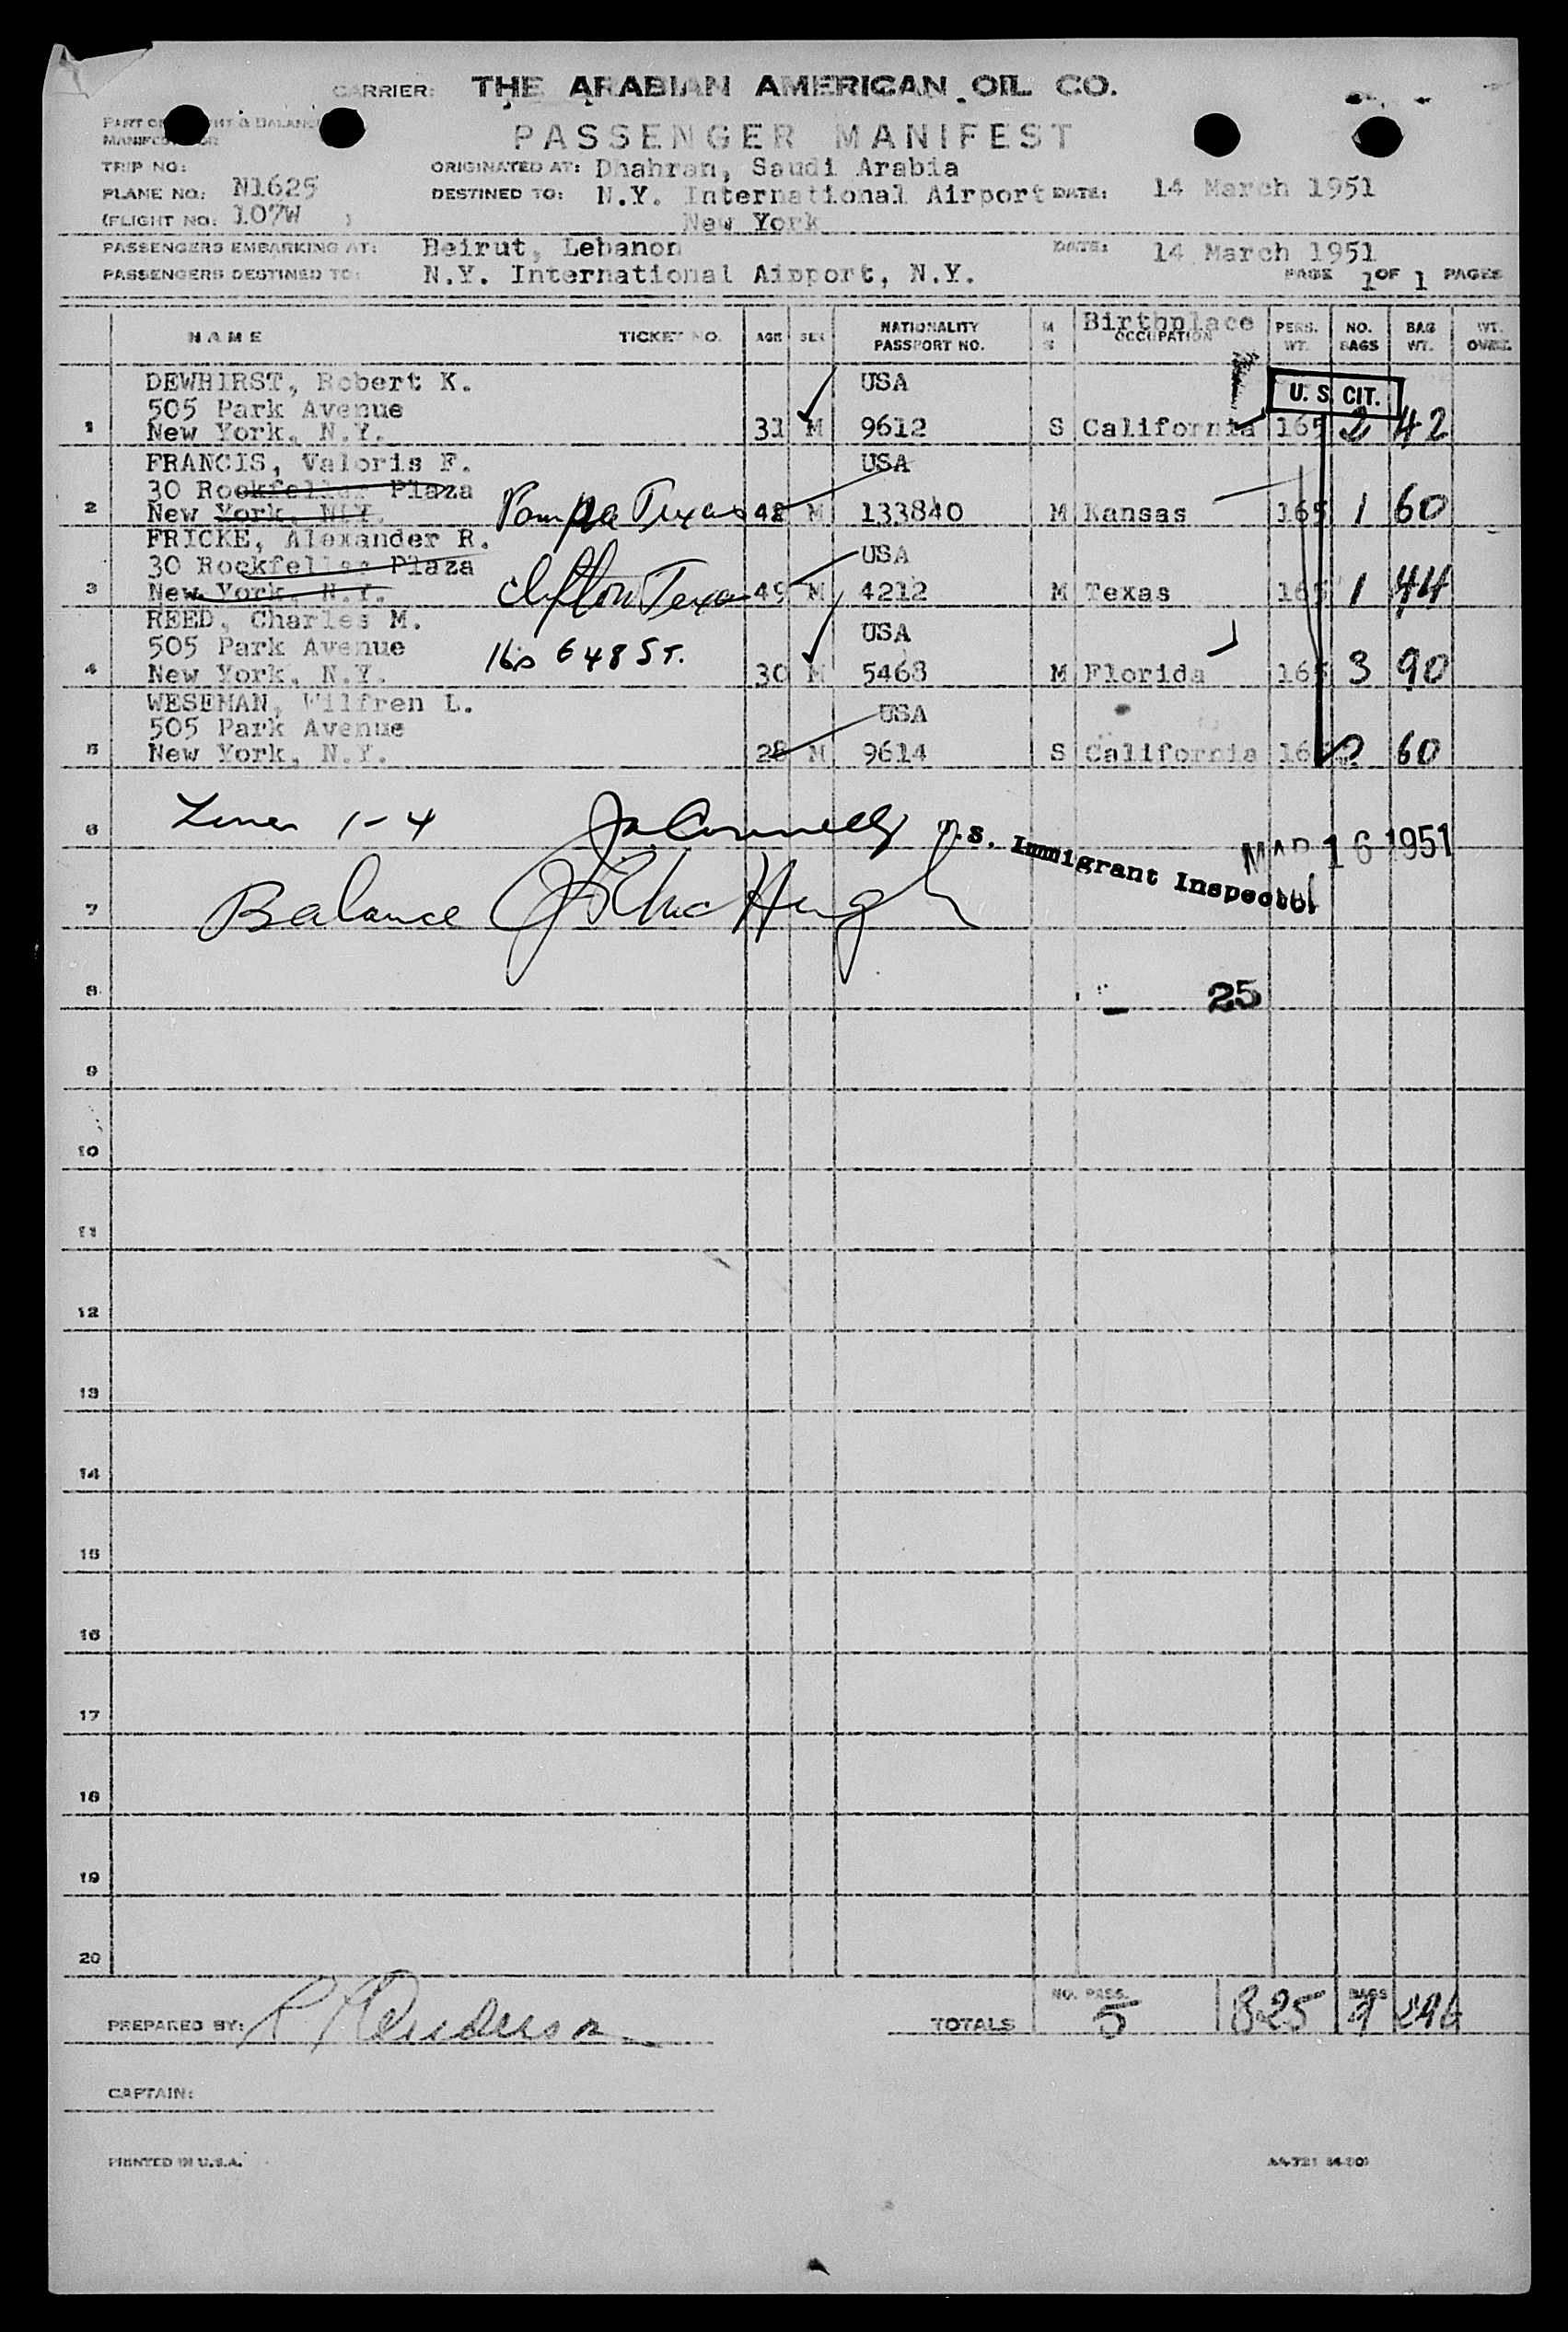 CARRIER: THE ARABIAN AMERICAN OIL CO.
PASSENGER MANIFEST
TRIP NO:
ORIGINATED AT: Dhahran, Saudi Arabia
PLANE NO: N1625
DESTINED TO: N.Y. International Airport DATE: 14 March 1951
(FLIGHT NO. 107W )
New York
PASSENGERS EMBARKING AT: Beirut, Lebanon DATE: 14 March 1951
PASSENGERS DESTINED TO: N.Y. International Airport, N.Y. PAGE 1 OF 1 PAGES
NAME TICKET NO. AGE SEX NATIONALITY PASSPORT NO. M S Birthplace OCCUPATION PERS. WT. NO. BAGS BAG WT. WT. OVER.
DEWHIRST, Robert K. USA U. S. CIT.
505 Park Avenue
1 New York, N.Y. 31 M 9612 S California 165 2 42
FRANCIS, Valoris F. USA
30 Rockfeller Plaza
2 New York, N.Y. Pampa Texas 42 M 133840 M Kansas 165 1 60
FRICKE, Alexander R. USA
30 Rockfeller Plaza
3 New York, N.Y. Clifton Texas 49 M 4212 M Texas 165 1 44
REED, Charles M. USA
505 Park Avenue 648 ST.
4 New York, N.Y. 30 M 5468 M Florida 165 3 90
WESEMAN, Wilfren L. USA
505 Park Avenue
5 New York, N.Y. 28 M 9614 S California 165 2 60
6 Lines 1-4 U.S. Immigrant Inspector MAR 16 1951
7 Balance
8 25
9
10
11
12
13
14
15
16
17
18
19
20
PREPARED BY: TOTALS NO. PASS. 5 825 BAGS 9 296
CAPTAIN:
PRINTED IN U.S.A.